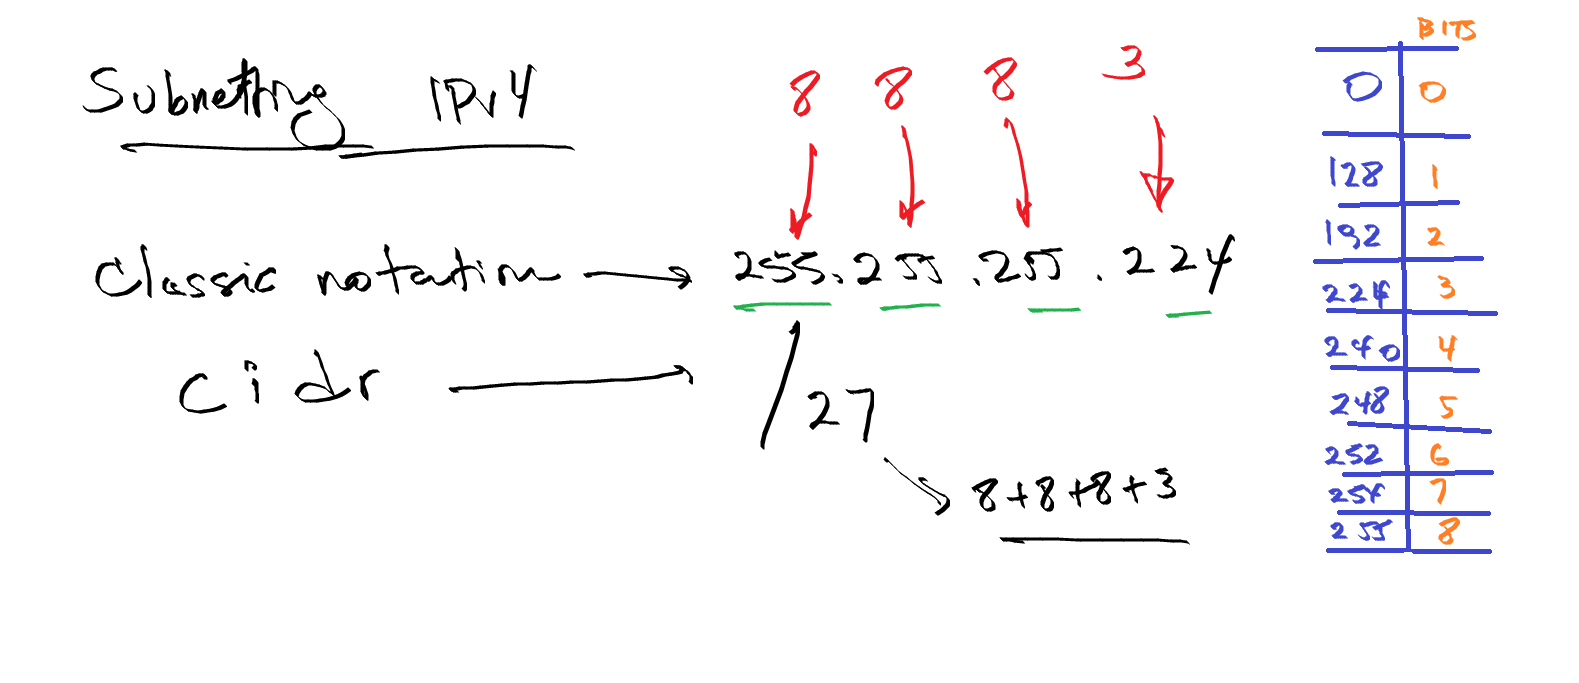 Subnetting IPv4
8 8 8 3
Classic notation → 255.255.255.224
cidr → /27
8+8+8+3
BITS
0 0
128 1
192 2
224 3
240 4
248 5
252 6
254 7
255 8